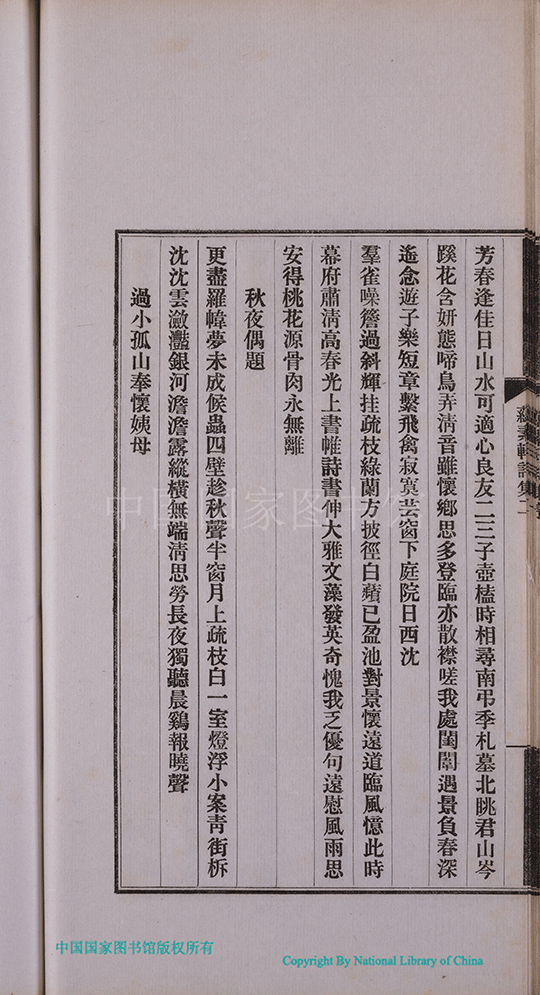 芳春逢佳日山水可適心良友二三子壺榼時相尋南弔季札墓北眺君山岑
蹊花含妍態啼鳥弄淸音雖懷鄕思多登臨亦散襟嗟我處閨闈遇景負春深
遙念遊子樂短章繫飛禽寂寞芸窗下庭院日西沈
羣雀噪簷過斜輝挂疏枝綠蘭方披徑白蘋已盈池對景懷遠道臨風憶此時
幕府肅淸高春光上書帷詩書伸大雅文藻發英奇愧我乏優句遠慰風雨思
安得桃花源骨肉永無離
秋夜偶題
更盡羅幃夢未成候蟲四壁趁秋聲半窗月上疏枝白一室燈浮小案靑街柝
沈沈雲瀲灩銀河澹澹露縱橫無端淸思勞長夜獨聽晨鷄報曉聲
過小孤山奉懷姨母
中国国家图书馆
中国国家图书馆版权所有
Copyright By National Library of China